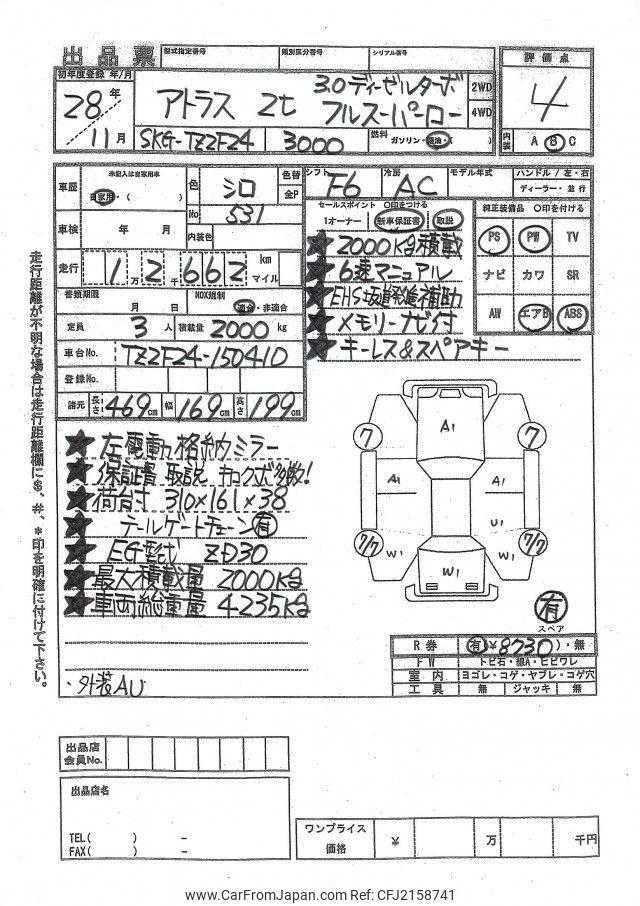 出品票 型式指定番号 類別区分番号 シリアル番号
初年度登録 年/月
28年 11月
アトラス 2t 3.0ディーゼルターボ フルスーパーロー
2WD
4WD
SKG-TZ2F24 3000 燃料 ガソリン・軽油・( )
評価点
4
内装 A B C
車歴 未記入は自家用車
自家用・( )
色 シロ
No 531
内装色
色替
全P
シフト F6 冷房 AC モデル年式
ハンドル / 左・右
ディーラー・並行
車検 年 月
走行 1万2千662 km マイル
書類期限 月 日
NOX規制 適合・非適合
定員 3人 積載量 2000 kg
車台No. TZ2F24-150410
登録No.
諸元 長さ 469cm 幅 169cm 高さ 199cm
セールスポイント 〇印をつける
1オーナー 新車保証書 取説
★2000kg積載
★6速マニュアル
★EHS坂道発進補助
★メモリーナビ付
★キーレス&スペアキー
純正装備品 〇印を付ける
PS PW TV
ナビ カワ SR
AW エアB ABS
★左電動格納ミラー
★保証書 取説 キロクボ多数!
★荷台寸 310×161×38
★テールゲートチェーン有
★EG型式 ZD30
★最大積載量 2000kg
★車両総重量 4235kg
・外装AU
A1
7 7
A1 A1
U1
7/7 7/7
W1 W1 W1
有
スペア
R券 有¥8730)・無
FW トビ石・線A・ヒビワレ
室内 ヨゴレ・コゲ・ヤブレ・コゲ穴
工具 無 ジャッキ 無
走行距離が不明な場合は走行距離欄に$、#、*印を明確に付けて下さい。
出品店
会員No.
出品店名
TEL( ) -
FAX( ) -
ワンプライス
価格 ¥ 万 千円
www.CarFromJapan.com Ref: CFJ2158741